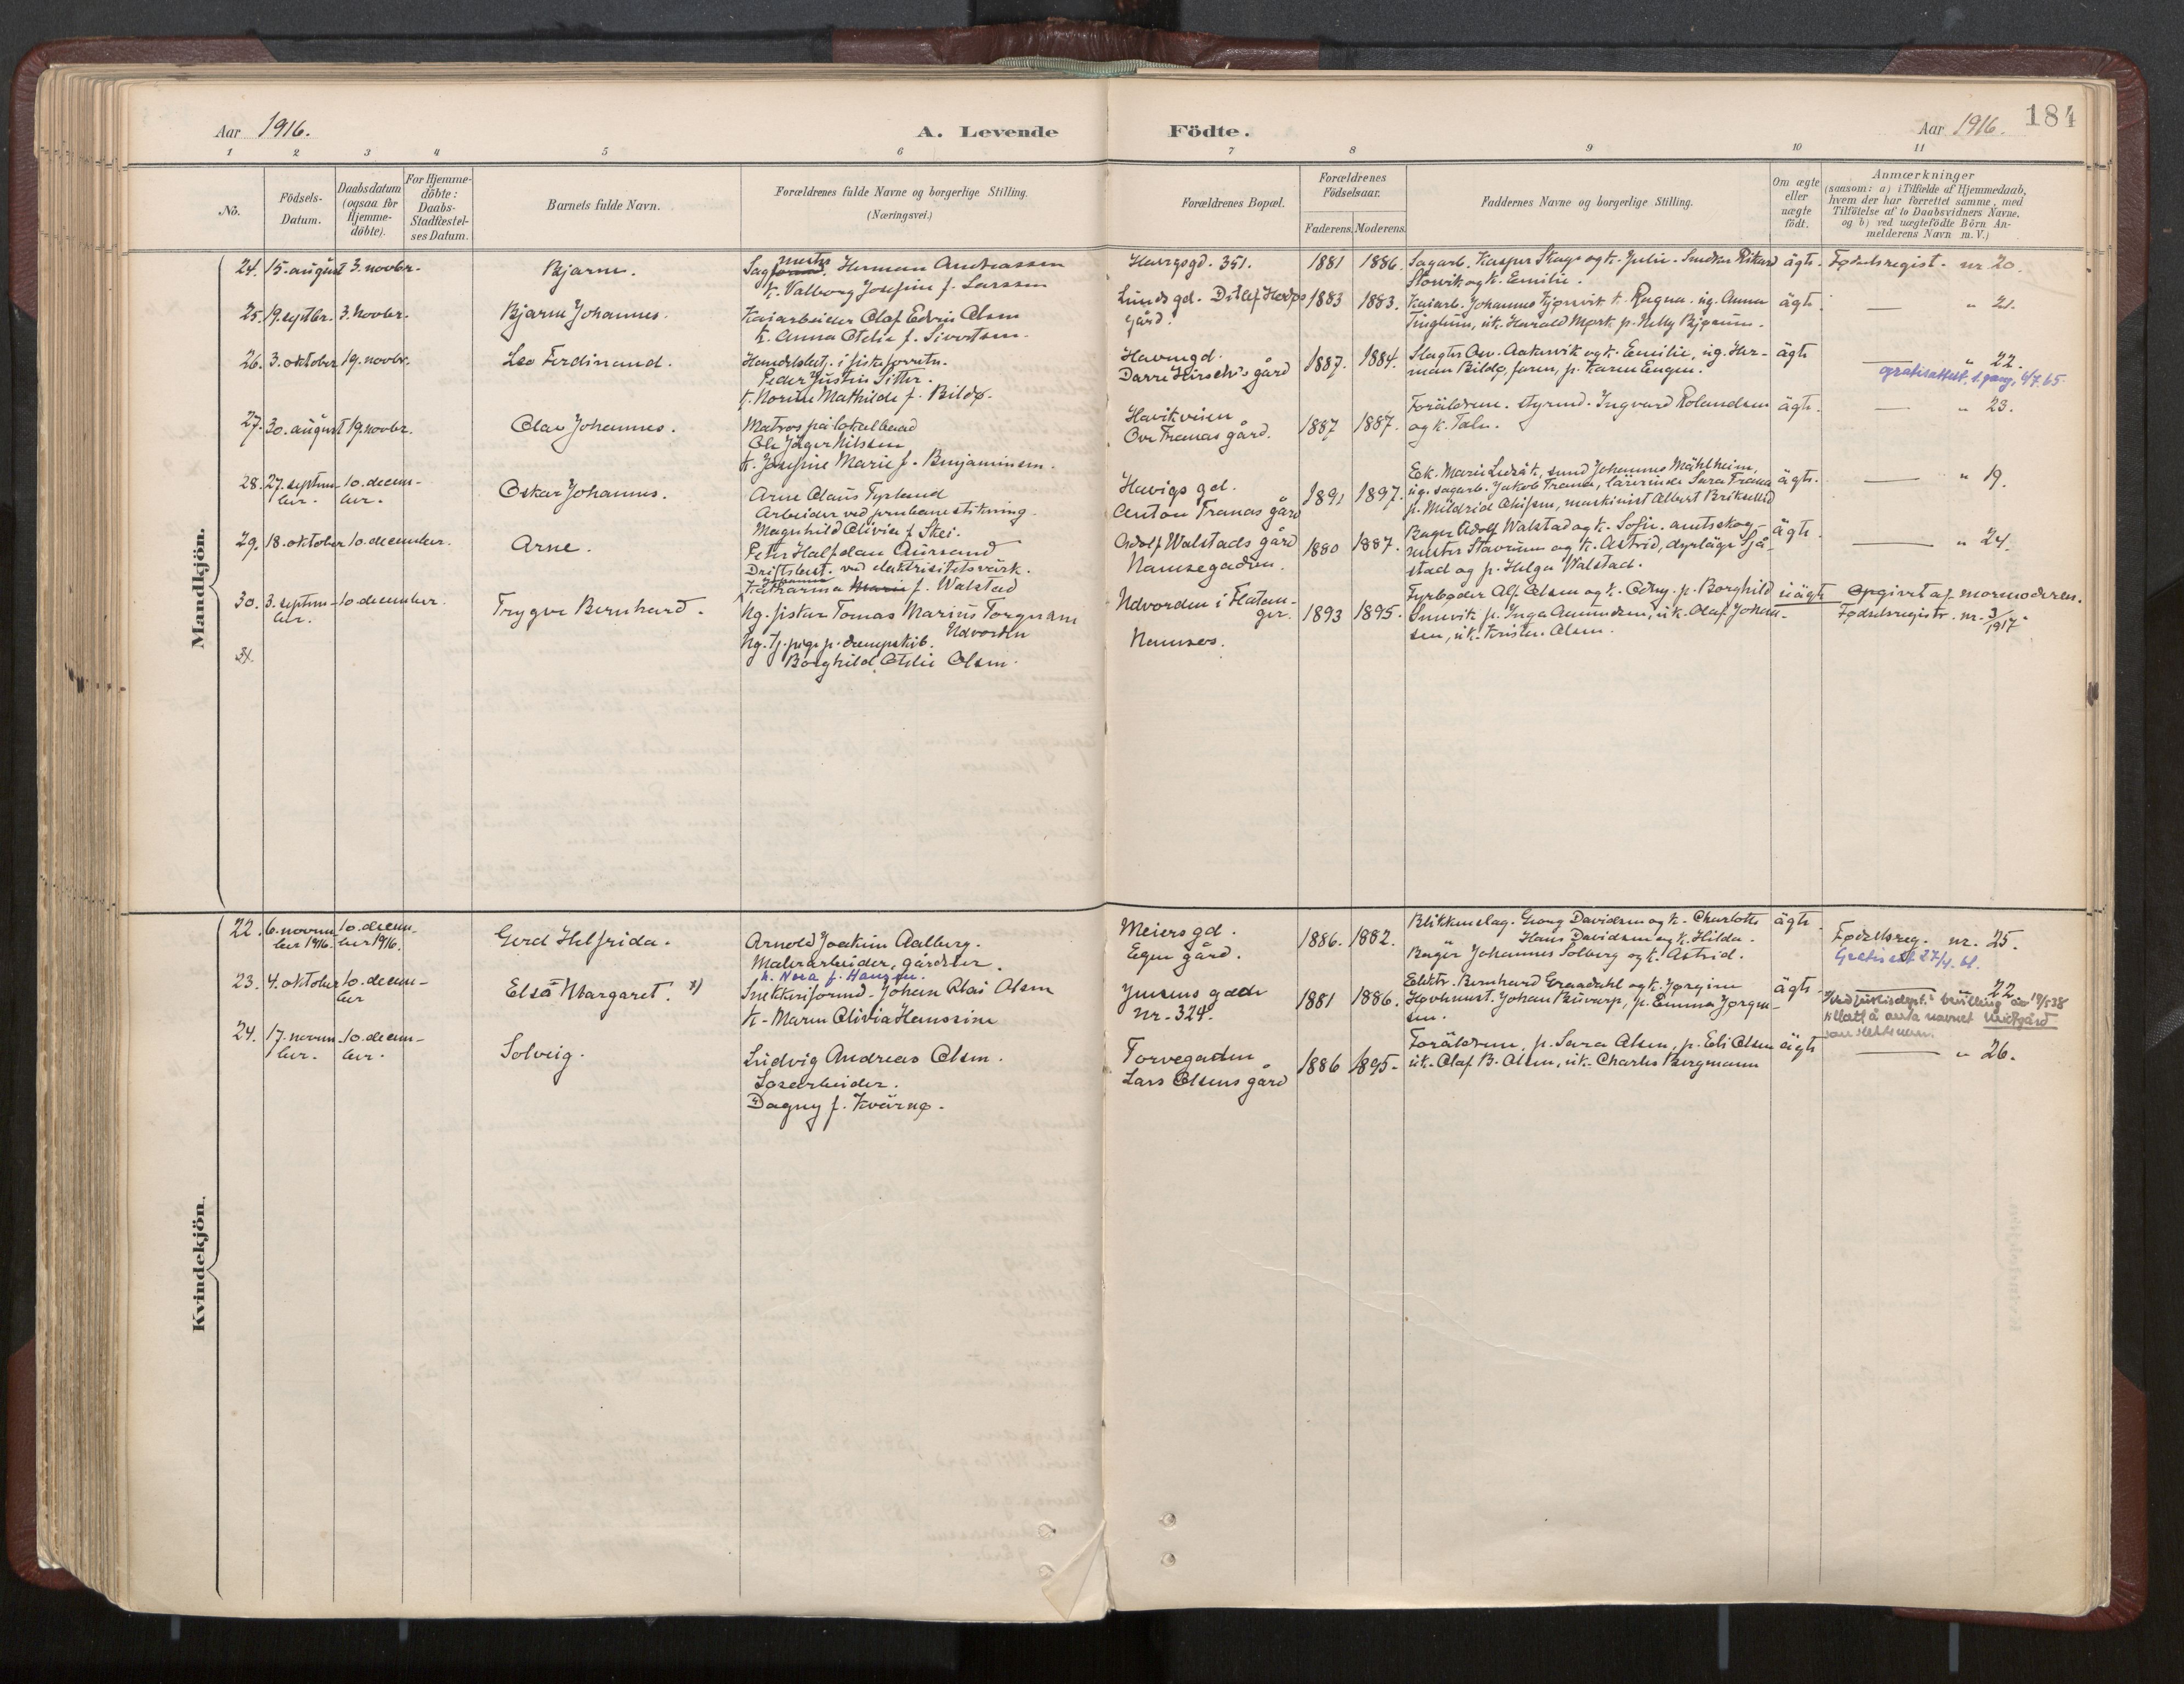 Aar 1916.
A. Levende Födte.
Aar 1916.
184
1 2 3 4 5 6 7 8 9 10 11
No.
Födsels-
Datum.
Daabsdatum
(ogsaa for
Hjemme-
döbte).
For Hjemme-
döbte:
Daabs-
Stadfæstel-
ses Datum.
Barnets fulde Navn.
Forældrenes fulde Navne og borgerlige Stilling.
(Næringsvei.)
Forældrenes Bopæl.
Forældrenes
Födselsaar.
Faderens. Moderens.
Faddernes Navne og borgerlige Stilling.
Om ægte
eller
uægte
födt.
Anmærkninger
(saasom: a) i Tilfælde af Hjemmedaab,
hvem der har forrettet samme, med
Tilföielse af to Daabsvidners Navne,
og b) ved uægtefödte Börn An-
melderens Navn m. V.)
Mandkjön.
24. 15. august 3. novbr.
Bjarne.
mester
Sagformd. Herman Andreassen
k. Valborg Josefine f. Larssen
Havigsgd. 351.
1881 1886.
Sagarb. Kasper Skage og k. Julie. Rikard
og k. Emilie.
ägte.
Fødselsregist. nr. 20.
25. 19. septbr. 3. novbr.
Bjarne Johannes.
Kaiarbeider Olaf Edvin Olsen
k. Anna Otelie f. Sivertsen.
Lunds gd. Ditlef Hodøs
gård.
1883 1883.
Kaiarb. Johannes Gjørvik k. Ragna. ug. Anna
Tinglum, uk. Harald Mørk p. Nelly Bjørum.
ägte
— " 21.
26. 3. oktober 19. novbr.
Leo Ferdinand.
Handelsbest. i fiskeforretn.
Peder Justin Sitter.
k. Norine Mathilde f. Bildø.
Havnegd.
Darre Hirsch's gård
1887. 1884.
Slagter Osv. Aakervik og k. Emilie, ug. Her-
man Bildø, faren, p. Karen Engen.
ägte
— " 22.
gratisattest, 1. gang, 4/7.65.
27. 30. august 19. novbr.
Olav Johannes.
Matros på lokalbaad
Ole Jäger Nilssen
k. Josefine Marie f. Benjaminsen.
Havikveien
Ove Tranas gård.
1887 1887.
Foräldrene. styrmd. Ingvard Rolandsen
og k. Taln.
ägte.
— " 23.
28. 27. septem- 10. decem-
ber. ber.
Oskar Johannes.
Arne Claus Fyrland
Arbeider ved jernbanestikning.
Magnhild Olivie f. Skei.
Havigs gd.
Anton Tranas gård
1891 1897.
Johannes Mählheim,
ug. sagarb. Jakob Trana, lärerinde Sara Trana
p. Mildrid Olsen, maskinist Albert
ägte.
— " 19.
29. 18. oktober 10. december.
Arne.
Peter Halfdan Aursand
Driftsbest. ved elektrisitetsvärk.
Johanna
Katharina Marie f. Walstad
Adolf Walstads gård
Namsegaden.
1880 1887.
Bager Adolf Walstad og k. Sofie. amtsskog-
mester Stavrum og k. Astrid, dyrläge Sjå-
stad og p. Helga Walstad.
ägte.
— " 24.
30. 3. septem- 10. december.
ber.
Trygve Bernhard.
Ug. fisker Tomas Marius Torgersen
Utvorden
Ug. tj. pige p. dampskib.
Borghild Otelie Olsen.
Utvorden i Flatan-
ger.
Namsos.
1893 1895.
Fyrbøder Alf Olsen og k. Odny. p. Borghild
p. Inga Amundsen, uk. Olaf Johan-
sen, uk. Kristen Olsen.
uägte
Opgivet af mormoderen.
Fødselsregistr. nr. 3/1917.
31.
Kvindekjön.
22. 6. novem- 10. decem-
ber 1916. ber 1916.
Gerd Helfrida.
Arnold Joakim Aalberg.
Malerarbeider, gårdeier.
k. Nora f. Hansen.
Meiersgd.
Egen gård.
1886. 1882.
Blikkenslag. Georg Davidsen og k. Charlotte
Hans Davidsen og k. Hilda.
Bager Johannes Solberg og k. Astrid.
ägte.
Fødselsreg. nr. 25.
Gratisatt 27/4. 61.
23. 4. oktober 10. decem-
ber
Elsa Margaret. x)
Snekkerformd. Johan Olai Olsen
k. Maren Olivia Hanssine
Jensens gade
Nr. 324.
1881 1886.
Elektr. Bernhard Graadahl og k. Jørgine
Johan Buvarp, p. Emma Jørgen-
sen.
ägte.
— " 22
x) Ved justisdept.s bevilling av 19/5 38
tillatt å anta navnet Kirkgård
som slektsnavn.
24. 17. novem- 10. decem-
ber. ber.
Solveig.
Ludvig Andreas Olsen.
Losearbeider.
Dagny f. Kvärnø.
Torvegaden
Lars Olsens gård
1886 1895.
Foräldrene, p. Sara Olsen, p. Eli Olsen
uk. Olaf B. Olsen, uk. Charles Bergmann
ägte
— " 26.